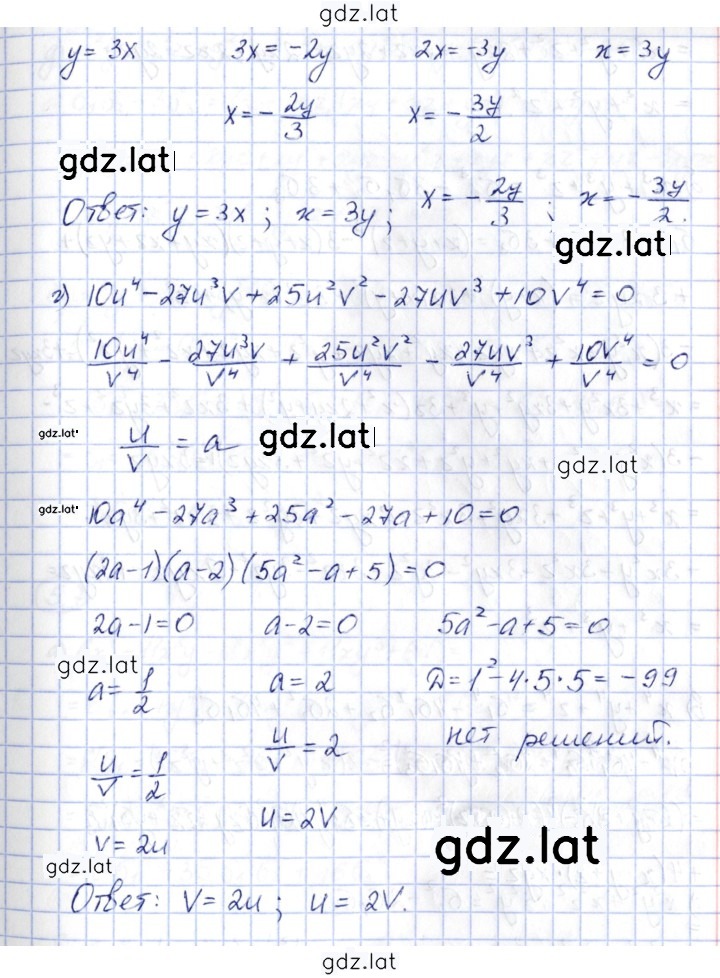 gdz.lat
y = 3x 3x = -2y 2x = -3y x = 3y
x = - 2y/3 x = - 3y/2
gdz.lat
Ответ: y = 3x ; x = 3y ; x = - 2y/3 ; x = - 3y/2 .
gdz.lat
г) 10u⁴ - 27u³v + 25u²v² - 27uv³ + 10v⁴ = 0
10u⁴/v⁴ - 27u³v/v⁴ + 25u²v²/v⁴ - 27uv³/v⁴ + 10v⁴/v⁴ = 0
gdz.lat u/v = a gdz.lat
gdz.lat
gdz.lat 10a⁴ - 27a³ + 25a² - 27a + 10 = 0
(2a-1)(a-2)(5a² - a + 5) = 0
2a-1=0 a-2=0 5a² - a + 5 = 0
gdz.lat
a = 1/2 a = 2 D = 1² - 4·5·5 = -99
u/v = 1/2 u/v = 2 нет решений.
v = 2u u = 2v
gdz.lat gdz.lat
Ответ: v = 2u ; u = 2v.
gdz.lat